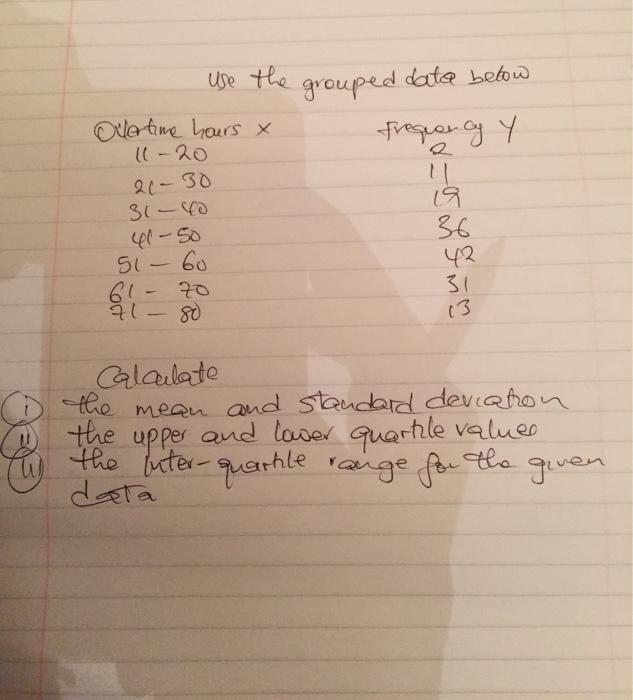 Use the grouped data below
Overtime hours x frequency Y
11 - 20 2
21 - 30 11
31 - 40 19
41 - 50 36
51 - 60 42
61 - 70 31
71 - 80 13
Calculate
(i) the mean and standard deviation
(ii) the upper and lower quartile values
(iii) the inter-quartile range for the given
data